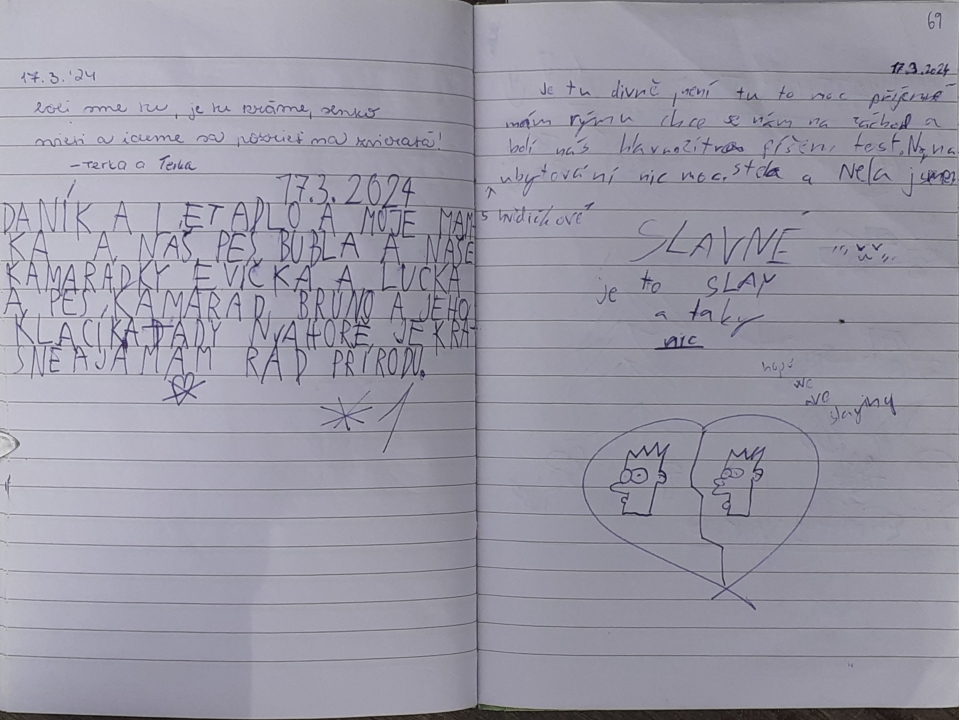 17.3.'24
boli sme tu, je tu krásne,
a ideme sa pozrieť na zvieratá!
- Terka a Terka
17.3.2024
DANÍK A LETADLO A MOJE MAM
KA A NÁŠ PES BUBLA A NAŠE
KAMARÁDKY EVIČKA A LUCKA
A PES KAMARÁD BRUNO A JEHO
KLACÍK. TADY NAHOŘE JE KRÁ-
SNĚ A JÁ MÁM RÁD PŘÍRODU.
69
17.3.2024
Je tu divně, není tu to moc příjemné
mám rýmu chce se nám na záchod a
bolí nás hlava, zítra píšem test. Na
ubytování nic moc. a Nela jsme
SLAVNÉ
je to SLAY
a taky
nic
we
slaying